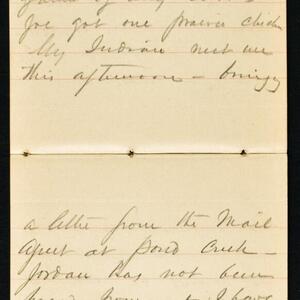 Joe got one prairie chicken
My Indian met me
this afternoon — bringing
a letter from the Mail
Agent at Pond Creek —
Jordan has not been
heard from I have